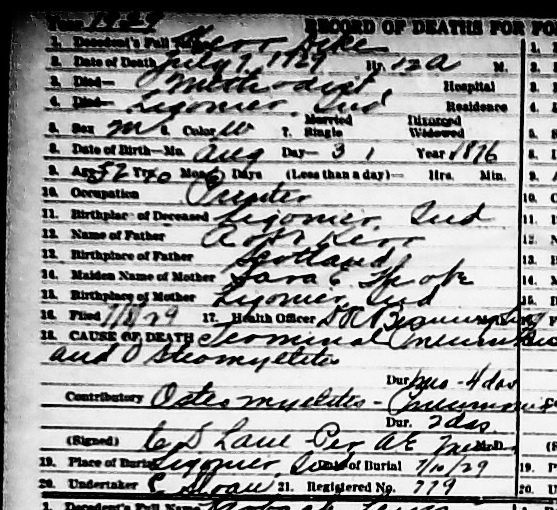 1929 RECORD OF DEATHS FOR FO
1. Decedent's Full Name Kerr Dike
2. Date of Death July 7, 1929 Hr. 12 A M.
3. Died— Methodist Hospital
4. Died— Ligonier, Ind Residence
5. Sex M 6. Color W 7. Married Single Divorced Widowed
8. Date of Birth—Mo. Aug Day— 31 Year 1876
9. Age 52 Yrs. 10 Mos. 6 Days (Less than a day)— Hrs. Min.
10. Occupation Printer
11. Birthplace of Deceased Ligonier, Ind
12. Name of Father Kerr
13. Birthplace of Father Scotland
14. Maiden Name of Mother Sara E
15. Birthplace of Mother Ligonier, Ind
16. Filed 7/8/29 17. Health Officer
18. CAUSE OF DEATH Terminal Pneumonia
and Osteomyelitis
Dur. mo - 4 das
Contributory Osteomyelitis - Pneumonia
Dur. 2 das.
(Signed) C D Lane Per AE M.D.
19. Place of Burial Ligonier, Ind Date of Burial 7/10/29
20. Undertaker C Sloan 21. Registered No. 779
1. Decedent's Full Name